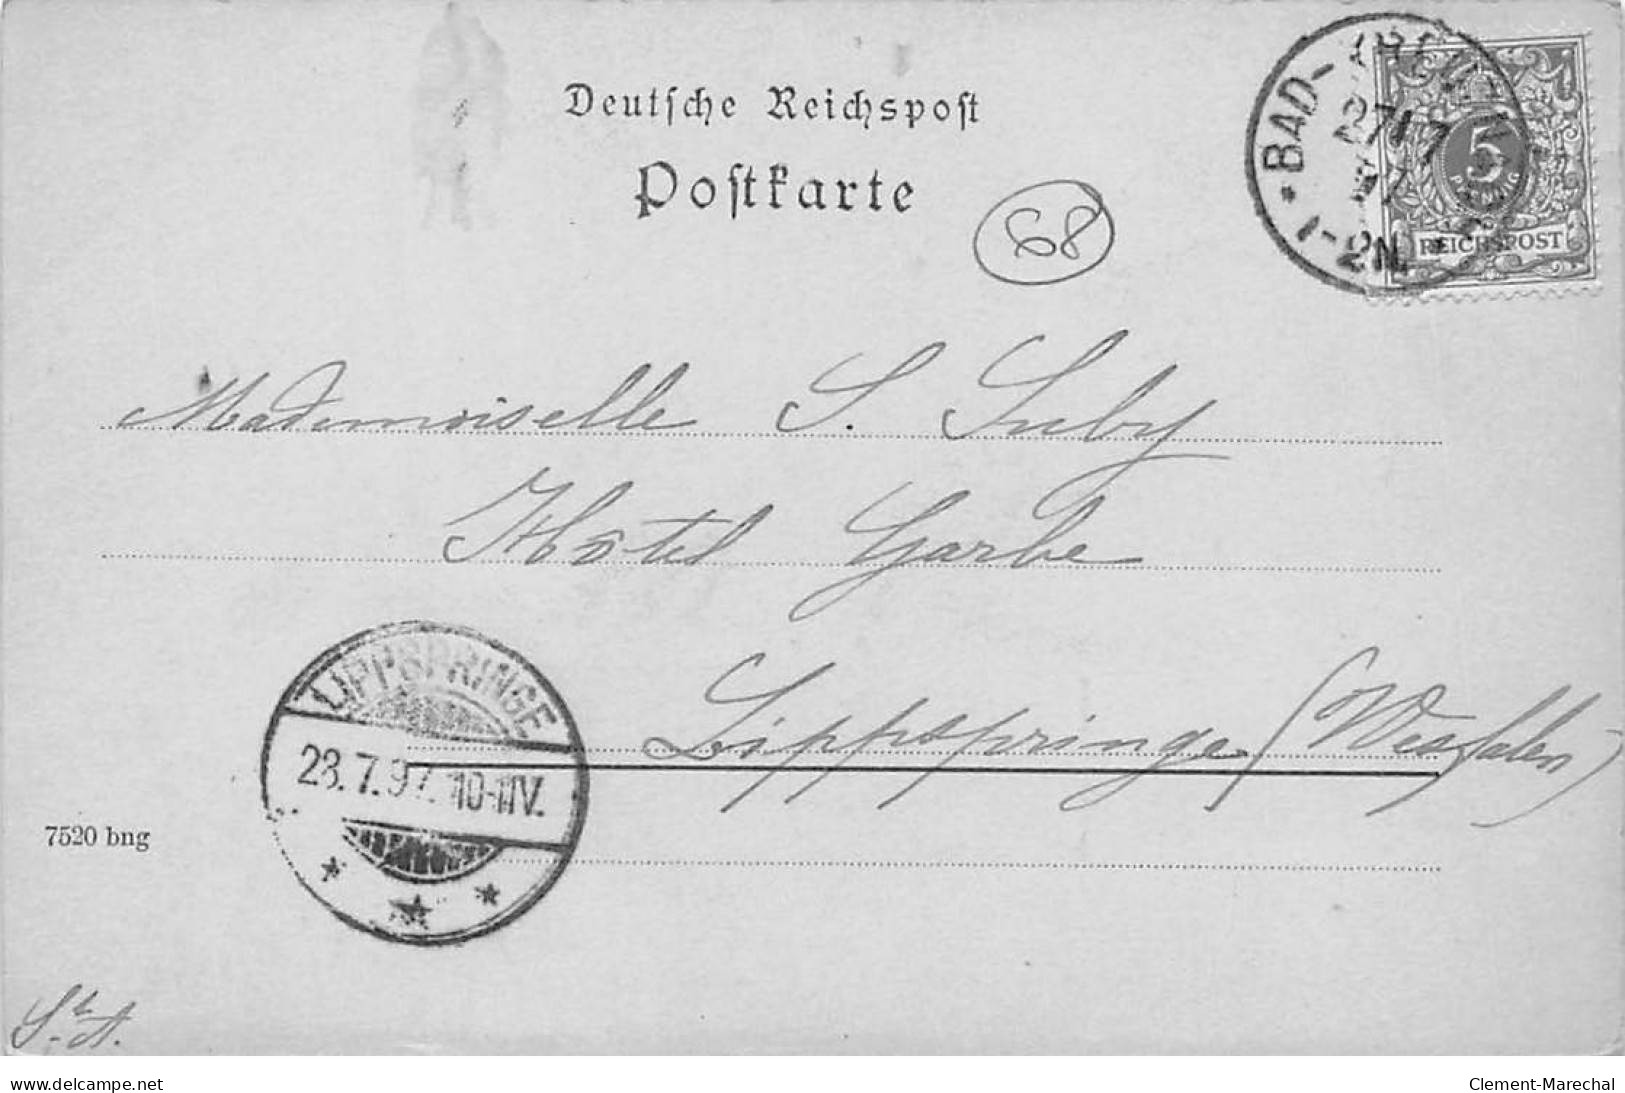 Deutsche Reichspost
Postkarte
68
BAD-
27 7
97
1-2N.
5
PFENNIG
REICHSPOST
Mademoiselle S. Suby
Hôtel Garbe
Lippspringe (Westfalen)
LIPPSPRINGE
28.7.97. 10-11V.
7520 bng
www.delcampe.net
Clement-Marechal